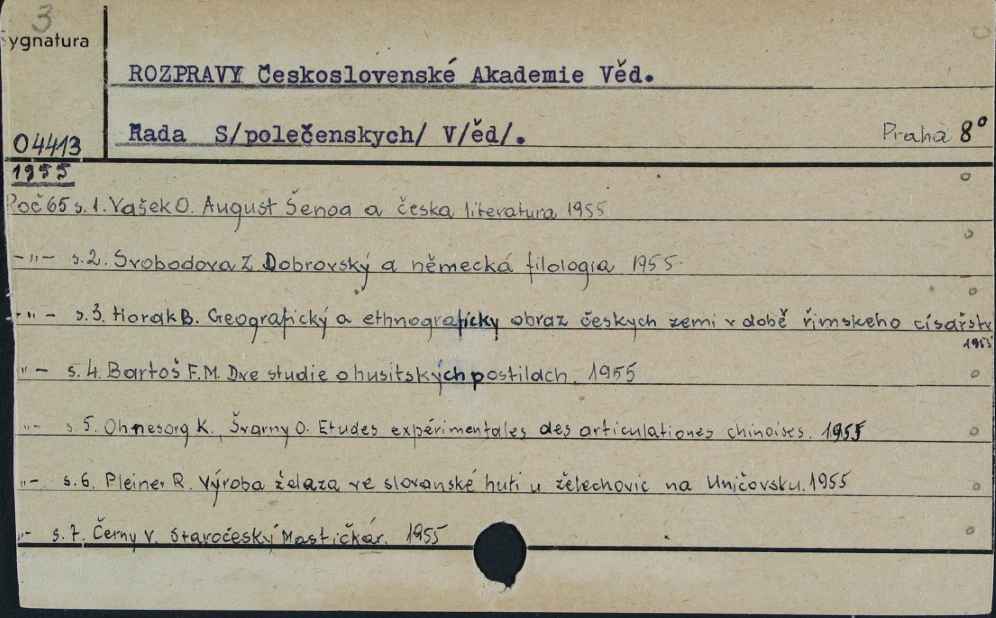 3
ygnatura
ROZPRAVY Československé Akademie Věd.
04413
Rada S/polečenskych/ V/ěd/. Praha 8°
1955
Roč 65 s. 1. Vašek O. August Šenoa a česka literatura 1955
-"- s. 2. Svobodova Z Dobrovský a německá filologia 1955
-"- s. 3. Horak B. Geografický a ethnograficky obraz českych zemi v době řimskeho císařstv
1955
"- s. 4. Bartoš F.M. Dve studie o husitských postilách. 1955
"- s 5. Ohnesorg K., Švarny O. Etudes expérimentales des articulationes chinoises. 1955
"- s. 6. Pleiner R. Výroba želaza ve slovanské huti u želechovic na Uničovsku. 1955
"- s. 7. Černy V. Staročeský Mastičkár. 1955